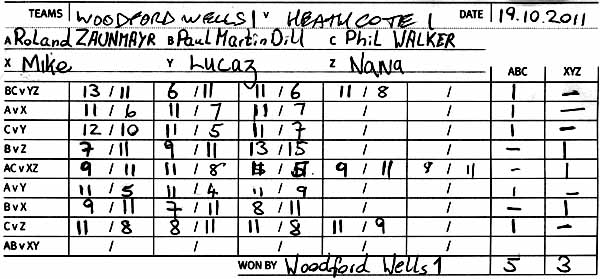 TEAMS WOODFORD WELLS 1 v HEATHCOTE 1 DATE 19.10.2011
A Roland ZAUNMAYR B Paul Martin Dill C Phil WALKER
X Mike Y Lucaz Z Nana ABC XYZ
BCvYZ 13 / 11 6 / 11 11 / 6 11 / 8 / 1 –
AvX 11 / 6 11 / 7 11 / 7 / / 1 –
CvY 12 / 10 11 / 5 11 / 7 / / 1 –
BvZ 7 / 11 9 / 11 13 / 15 / / – 1
ACvXZ 9 / 11 11 / 8 / 9 / 11 / 11 – 1
AvY 11 / 5 11 / 4 11 / 9 / / 1 –
BvX 9 / 11 7 / 11 8 / 11 / / – 1
CvZ 11 / 8 8 / 11 11 / 8 11 / 9 / 1 –
ABvXY / / / / /
WON BY Woodford Wells 1 5 3